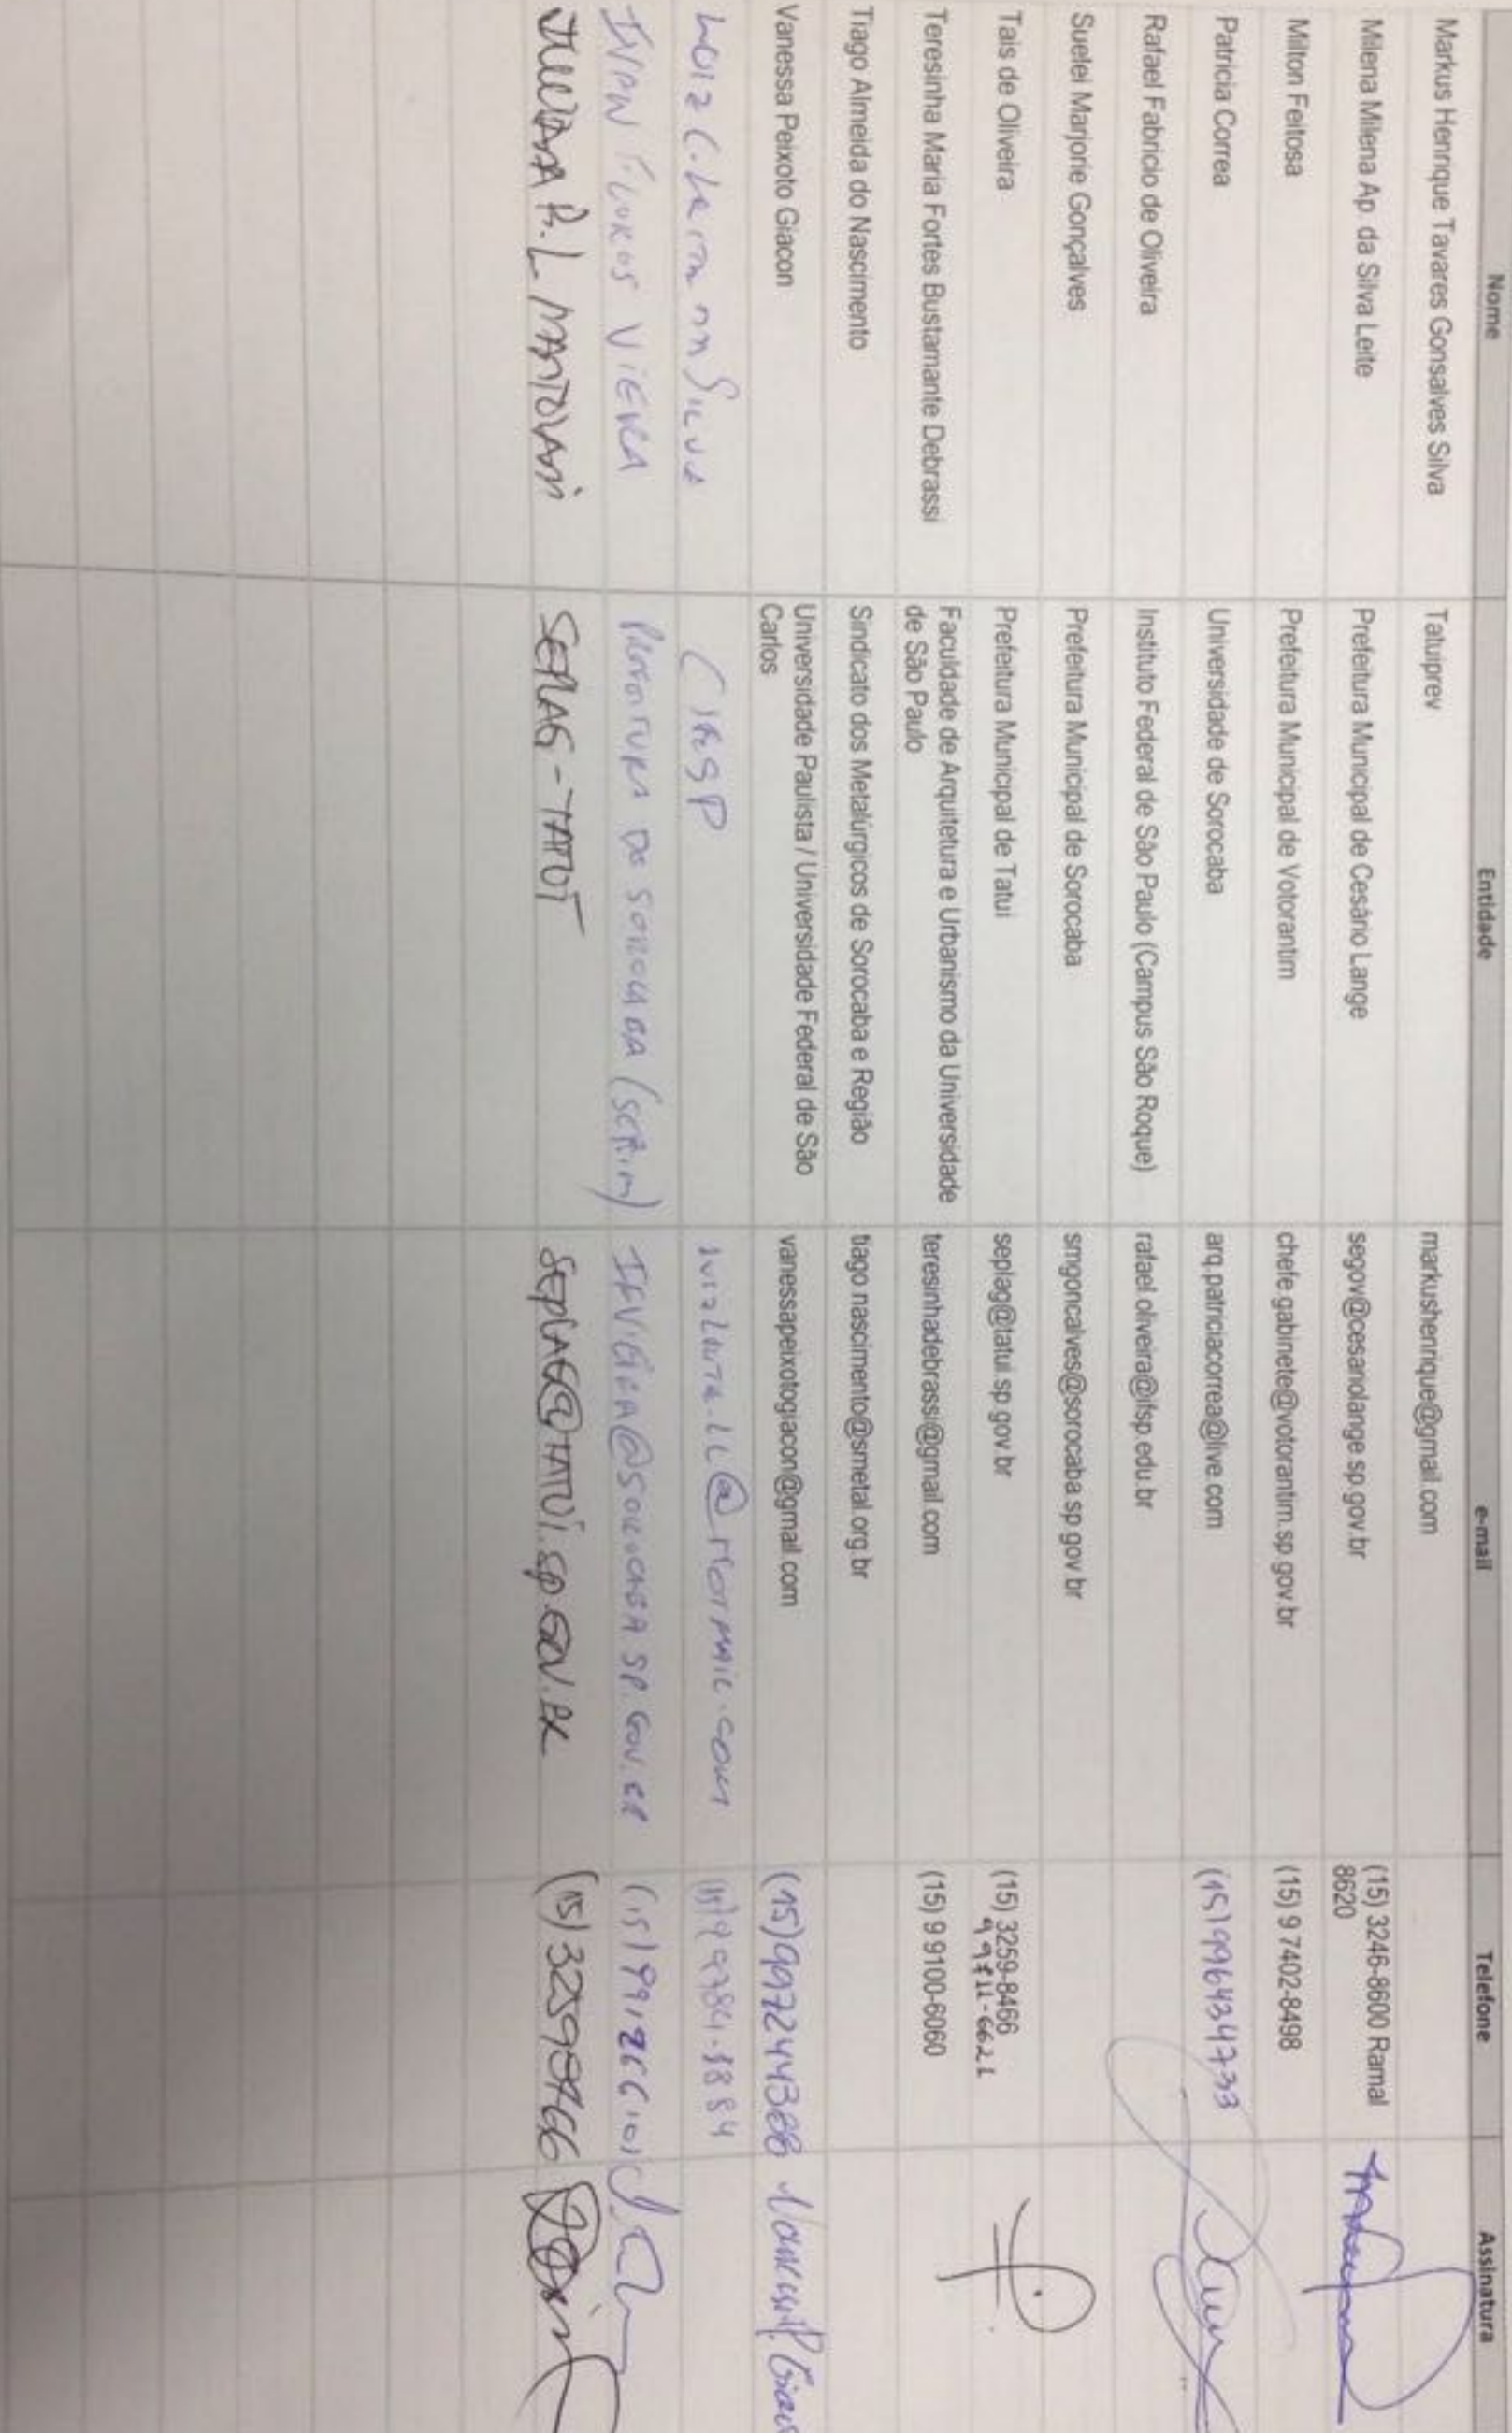 Nome Entidade e-mail Telefone Assinatura
Markus Henrique Tavares Gonsalves Silva Tatuiprev markushenrique@gmail.com
Milena Milena Ap. da Silva Leite Prefeitura Municipal de Cesário Lange segov@cesariolange.sp.gov.br (15) 3246-8600 Ramal
8620
Milton Feitosa Prefeitura Municipal de Votorantim chefe.gabinete@votorantim.sp.gov.br (15) 9 7402-8498
Patricia Correa Universidade de Sorocaba arq.patriciacorrea@live.com (15) 996434733
Rafael Fabricio de Oliveira Instituto Federal de São Paulo (Campus São Roque) rafael.oliveira@ifsp.edu.br
Suelei Marjorie Gonçalves Prefeitura Municipal de Sorocaba smgoncalves@sorocaba.sp.gov.br
Tais de Oliveira Prefeitura Municipal de Tatui seplag@tatui.sp.gov.br (15) 3259-8466
Teresinha Maria Fortes Bustamante Debrassi Faculdade de Arquitetura e Urbanismo da Universidade
de São Paulo teresinhadebrassi@gmail.com (15) 9 9100-6060
Tiago Almeida do Nascimento Sindicato dos Metalúrgicos de Sorocaba e Região tiago.nascimento@smetal.org.br
Vanessa Peixoto Giacon Universidade Paulista / Universidade Federal de São
Carlos vanessapeixotogiacon@gmail.com (15) 997244388 Vanessa P. Giacon
Luiz C. Leite da Silva
IVAN FLORES VIEIRA PREFEITURA DE SOROCABA IFVIEIRA@SOROCABA.SP.GOV.BR
JULIANA R. L MANTOVANI SEPLAG-TATUÍ SEPLAG@TATUÍ.SP.GOV.BR (15) 32598466